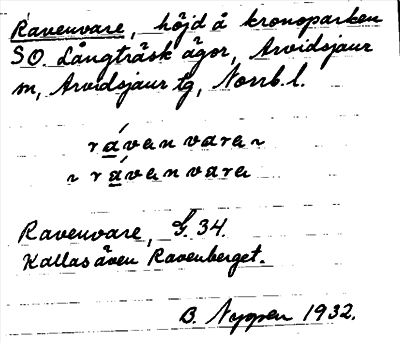 Ravenvare, höjd å kronoparken
SO. Långträsk ägor, Arvidsjaur
sn, Arvidsjaur tg, Norrb. l.
rávenvara ~
~ rávenvara
Ravenvare, G. 34.
Kallas även Ravenberget.
B. Nyppen 1932.